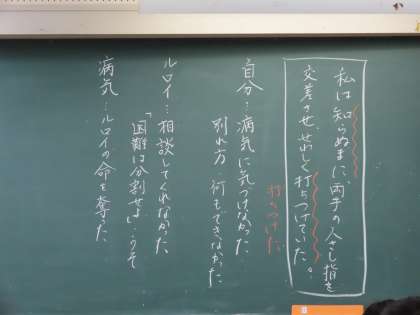 私は知らぬまに、両手の人さし指を
交差させ、せわしく打ちつけていた。
打ちつけた
自分…病気に気づけなかった
別れ方、何もできなかった
ルロイ…相談してくれなかった
「困難は分割せよ」…うそ
病気…ルロイの命を奪った